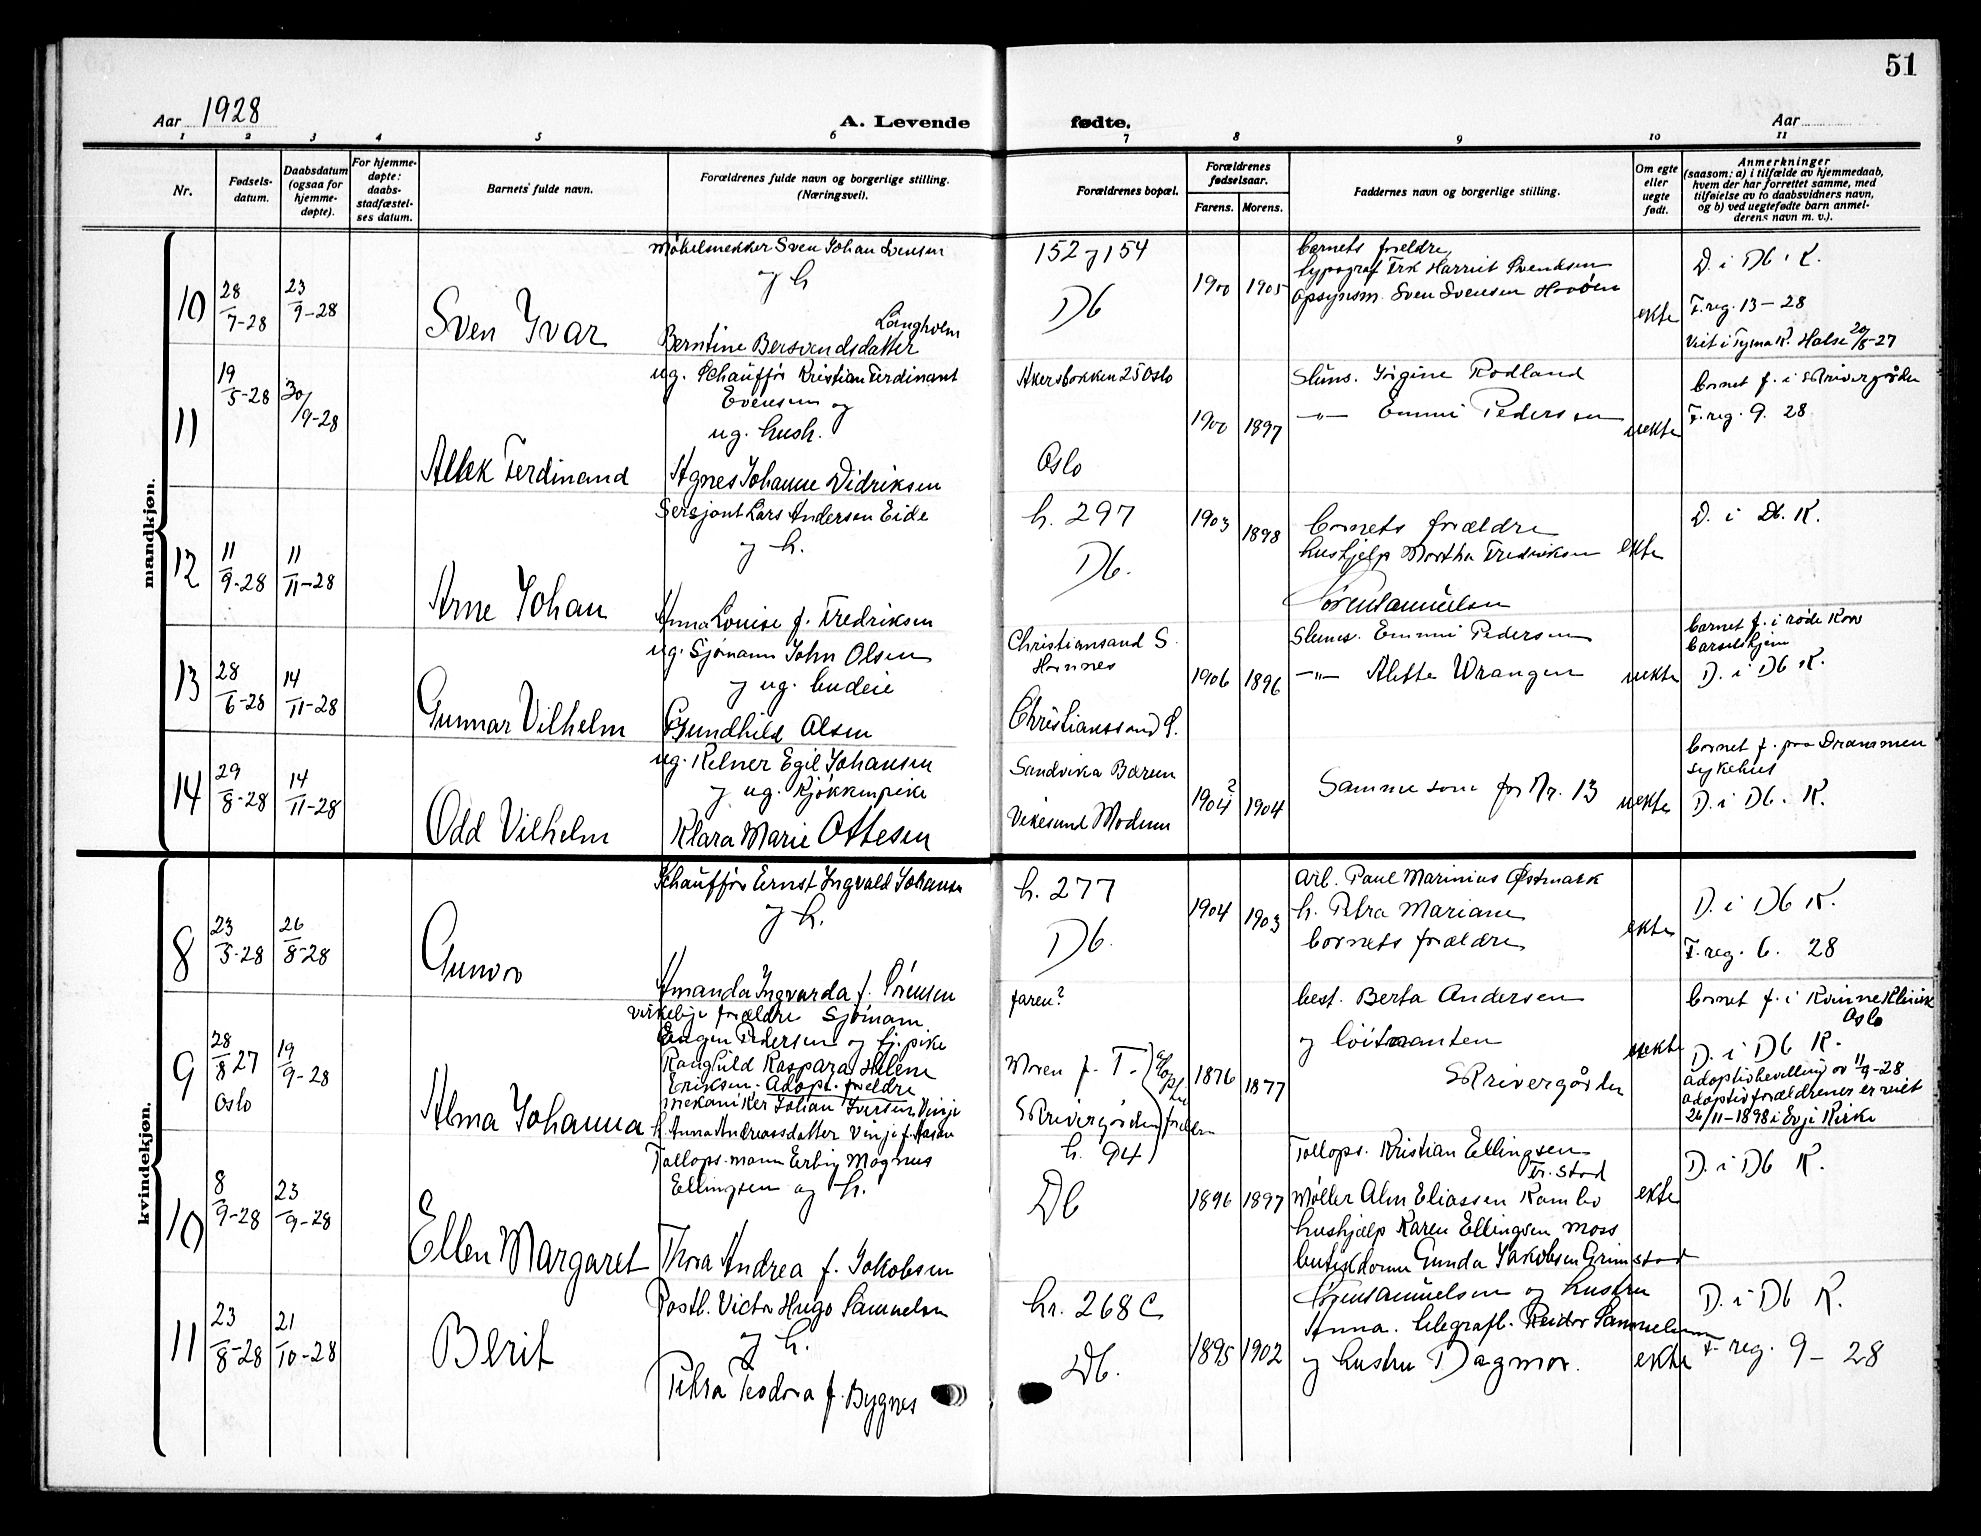 51
Aar 1928
A. Levende
fødte.
Aar
1 2 3 4 5 6 7 8 9 10 11
Nr.
Fødsels-
datum.
Daabsdatum
(ogsaa for
hjemme-
døpte).
For hjemme-
døpte:
daabs-
stadfæstel-
ses datum.
Barnets' fulde navn.
Forældrenes fulde navn og borgerlige stilling.
(Næringsvei).
Forældrenes bopæl.
Forældrenes
fødselsaar.
Farens. Morens.
Faddernes navn og borgerlige stilling.
Om egte
eller
uegte
født.
Anmerkninger
(saasom: a) i tilfælde av hjemmedaab,
hvem der har forrettet samme, med
tilføielse av to daabsvidners navn,
og b) ved uegtefødte barn anmel-
derens navn m. v.).
mandkjøn.
10
28/7-28
23/9-28
Sven Yvar
Møbelsnekker Sven Johan
og h
Langholm
Berntine Bersvendsdatter
152 og 154
Db
1900 1905
barnets forældre
typograf Frk Harriet Svendsen
opsynsm. Sven Svensen
ekte
D. i Db. K.
F. reg. 13-28
Viet i Fyma K. Halse 20/8-27
11
19/5-28
30/9-28
Alek Ferdinand
ug. Schauffør Kristian Ferdinant
Evensen og
ug. hush.
Agnes Johanne Didriksen
Akersbakken 25 Oslo
Oslo
1900 1897
Slums. Jørgine Rodland
-"- Emmi Pedersen
uekte
Barnet f. i Skrivergården
F. reg. 9. 28
12
11/9-28
11/11-28
Arne Johan
Sersjant Lars Andersen Eide
og h.
Anna Louise f. Fredriksen
h. 297
Db.
1903 1898
barnets forældre
hushjelp Martha Fredriksen
Sørensamuelsen
ekte
D. i Db. K.
13
28/6-28
14/11-28
Gunnar Vilhelm
ug. Sjømann John Olsen
og ug. budeie
Gundhild Olsen
Christiansand S.
Hornnes
Christianssand S.
1906 1896
Slums. Emmi Pedersen
-"- Alette Wrangen
uekte
barnet f. i røde Kors
barselshjem
D. i Db K.
14
29/8-28
14/11-28
Odd Vilhelm
ug. Kelner Egil Johansen
og ug. Kjøkkenpike
Klara Marie Ottesen
Sandvika Bærum
Vikesund Modum
1904? 1904
Samme som for Nr. 13
uekte
barnet f. paa Drammen
sykehus
D. i Db. K.
kvindekjøn.
8
23/5-28
26/8-28
Gunvor
Schauffør Ernst Ingvald Johansen
og h.
Amanda Ingvarda f. Sørensen
h. 277
Db.
1904 1903
Arb. Paul Marinius Østmark
h. Petra Mariane
barnets forældre
ekte
D. i Db K.
F. reg. 6. 28
9
28/8 27
Oslo
19/9-28
Alma Johanna
virkelige forældre sjømann
Eugen Pedersen og tj.pike
Ranghild Kaspara Helene
Eriksen. Adopt. forældre
mekaniker Johan Iversen Vinje
h Anna Andreassdatter Vinje f. Aasen
faren?
Moren f. T.
Skrivergården
adoptiv
foreldre
1876 1877
best. Berta Andersen
og løitnanten
Skrivergården
uekte
barnet f. i Kvinneklinik
Oslo
D. i Db K.
adoptivbevilling av 11/9-28
adoptivforældrenes er viet
26/11-1898 i Evje Kirke
10
8/9-28
23/9-28
Ellen Margaret
Tollops.mann Erling Magnus
Ellingsen og h.
Thora Andrea f. Jakobsen
h. 94
Db
1896 1897
Tollops. Kristian Ellingsen
Fr.stad
Møller Alm Eliassen Kambo
hushjelp Karen Ellingsen Moss
butikdame Gunda Jakobsen Grimstad
ekte
D. i Db K.
11
23/8-28
21/10-28
Berit
Postb. Victor Hugo Samuelsen
og h.
Petra Teodora f. Bygnes
hr. 268 C
Db.
1895 1902
Sørensamuelsen og hustru
Anna. telegrafb. Reidar Samuelsen
og hustru Dagmar.
ekte
D. i Db K.
F. reg. 9-28